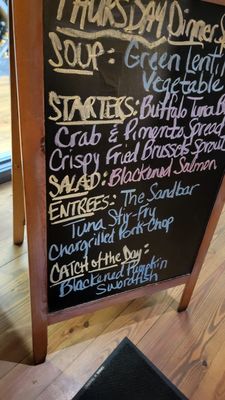 THURSDAY Dinner
SOUP: Green Lentil
Vegetable
STARTERS: Buffalo Tuna B
Crab & Pimento Spread
Crispy Fried Brussels Sprout
SALAD: Blackened Salmon
ENTRÉES: The Sandbar
Tuna Stir-Fry
Chargrilled Pork Chop
CATCH of the Day:
Blackened Pumpkin
Swordfish